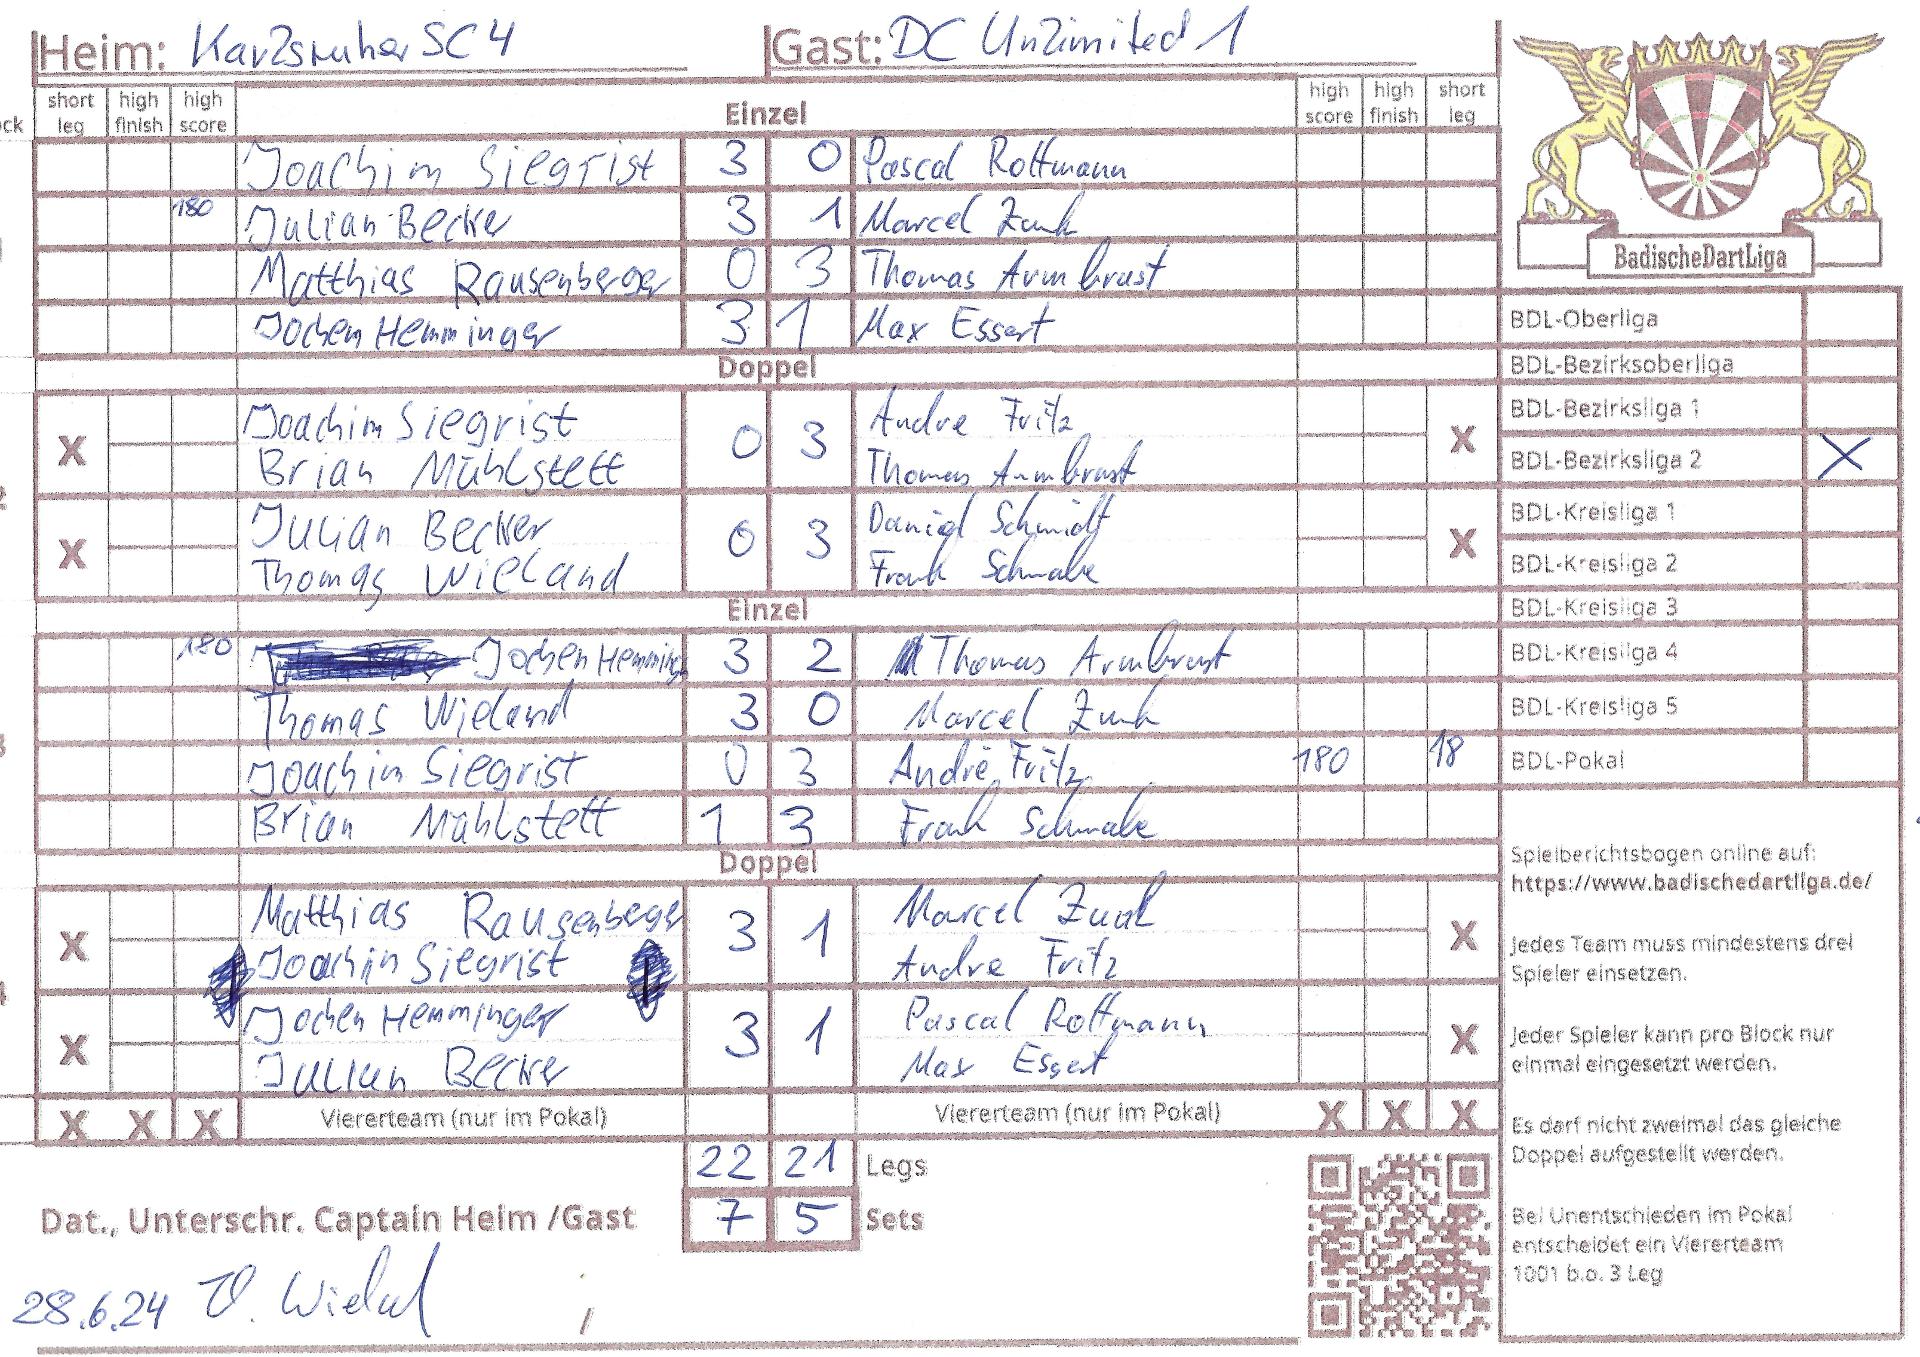 Heim: Karlsruher SC 4 Gast: DC Unlimited 1
ck short leg high finish high score Einzel high score high finish short leg
Joachim Siegrist 3 0 Pascal Rottmann
180 Julian Becker 3 1 Marcel Zunk
Matthias Rausenberger 0 3 Thomas Armbrust
Jochen Hemminger 3 1 Max Essert
Doppel
Joachim Siegrist 0 3 Andre Fritz
X Brian Mühlstett Thomas Armbrust X
Julian Becker 0 3 Daniel Schmidt
X Thomas Wieland Frank Schwabe X
Einzel
180 Jochen Hemming 3 2 Thomas Armbrust
Thomas Wieland 3 0 Marcel Zunk
Joachim Siegrist 0 3 André Fritz 180 18
Brian Mühlstett 1 3 Frank Schwabe
Doppel
Matthias Rausenberger 3 1 Marcel Zunk
X Joachin Siegrist Andre Fritz X
Jochen Hemminger 3 1 Pascal Rottmann
X Julian Becker Max Essert X
X X X Viererteam (nur im Pokal) Viererteam (nur im Pokal) X X X
22 21 Legs
Dat., Unterschr. Captain Heim /Gast 7 5 Sets
28.6.24
BadischeDartLiga
BDL-Oberliga
BDL-Bezirksoberliga
BDL-Bezirksliga 1
BDL-Bezirksliga 2 X
BDL-Kreisliga 1
BDL-Kreisliga 2
BDL-Kreisliga 3
BDL-Kreisliga 4
BDL-Kreisliga 5
BDL-Pokal
Spielberichtsbogen online auf:
https://www.badischedartliga.de/
Jedes Team muss mindestens drei
Spieler einsetzen.
Jeder Spieler kann pro Block nur
einmal eingesetzt werden.
Es darf nicht zweimal das gleiche
Doppel aufgestellt werden.
Bei Unentschieden im Pokal
entscheidet ein Viererteam
1001 b.o. 3 Leg